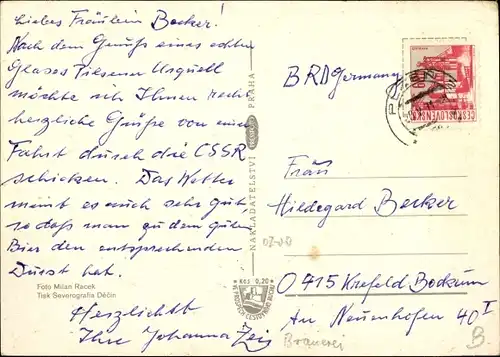 Liebes Fräulein Becker!
Nach dem Genuß eines echten
Glases Pilsener Urquell
möchte ich Ihnen recht
herzliche Grüße von einer
Fahrt durch die CSSR
schicken. Das Wetter
meint es auch sehr gut,
so daß man zu dem guten
Bier den entsprechenden
Durst hat.
Herzlichst
Ihre Johanna
Foto Milan Racek
Tisk Severografia Děčín
NAKLADATELSTVÍ PRAHA
603 0,20
PLZEŇ
ČESKOSLOVENSKO
BRD Germany
Frau
Hildegard Becker
0415 Krefeld Bockum
An Neuenhofen 40 I
Brauerei
B.